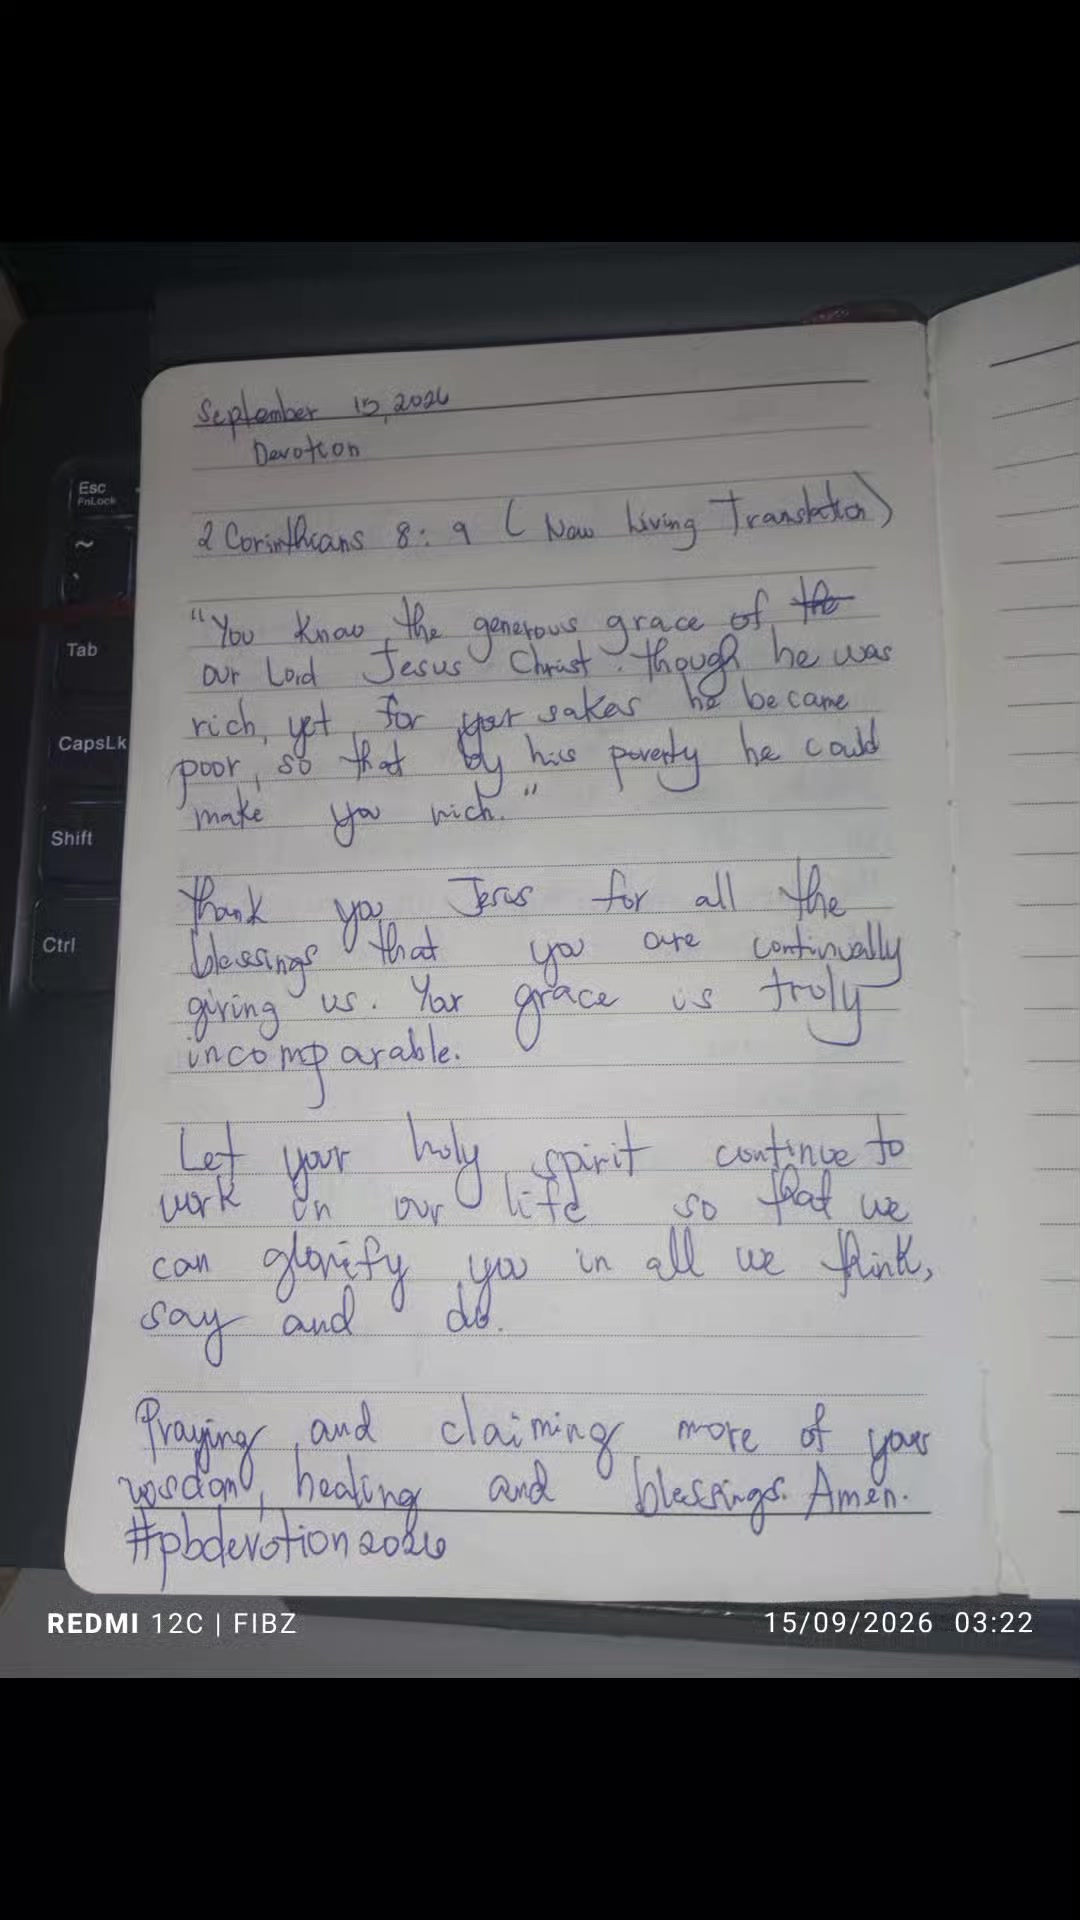 September 15, 2026
Devotion
2 Corinthians 8:9 (New Living Translation)
"You know the generous grace of the
our Lord Jesus Christ. though he was
rich, yet for your sakes he became
poor, so that by his poverty he could
make you rich."
Thank you Jesus for all the
blessings that you are continually
giving us. Your grace is truly
incomparable.
Let your holy spirit continue to
work in our life so that we
can glorify you in all we think,
say and do.
Praying and claiming more of your
wisdom, healing and blessings. Amen.
#pbdevotion2026
Esc
FnLock
~
`
Tab
CapsLk
Shift
Ctrl
REDMI 12C | FIBZ
15/09/2026 03:22